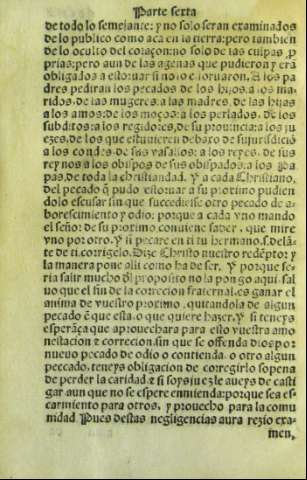 Parte sexta
de todo lo semejante: y no solo seran examinados
de lo publico como aca en la tierra: pero tambien
de lo oculto del coraçon: no solo de las culpas p
prias: pero aun de las agenas que pudieron y erã
obligados a estoruar si no lo estoruaron. A los pa
dres pediran los pecados de los hijos. a los ma
ridos, de las mugeres. a las madres, de las hijas
a los amos: de los moços: a los perlados, de los
subditos: a los regidores, de su prouincia: a los ju
ezes, de los que estuuieren debaxo de su jurisdició
a los condes, de sus vasallos: a los reyes, de sus
reynos a los obispos de sus obispados: a los Pa
pas, de toda la christiandad. Y a cada Christiano,
del pecado q̃ pudo estoruar a su proximo pudien
dolo escusar sin que succediesse otro pecado de a
borescimiento y odio: porque a cada vno mando
el señor: de su proximo, conuiene saber, que mire
vno por otro. Y si pecare en ti tu hermano, s. delã
te de ti, corrigelo. Dize Christo nuestro redẽptor: y
la manera pone alli como ha de ser. Y porque se
ria salir mucho ðl proposito no la pongo aqui. sal
uo que el fin de la correcion fraternal, es ganar el
anima de vuestro proximo, quitandola de algun
pecado ẽ que esta, o que quiere hazer. Y si teneys
esperãça que aprouechara para esto vuestra amo
nestacion z correcion, sin que se offenda dios por
nueuo pecado de odio o contienda, o otro algun
peccado, teneys obligacion de corregirlo sopena
de perder la caridad. z si soys juez le aueys de casti
gar aun que no se espere enmienda: porque sea es
carmiento para otros, y prouecho para la comu
nidad. Pues destas negligencias aura rezio exa-
men,